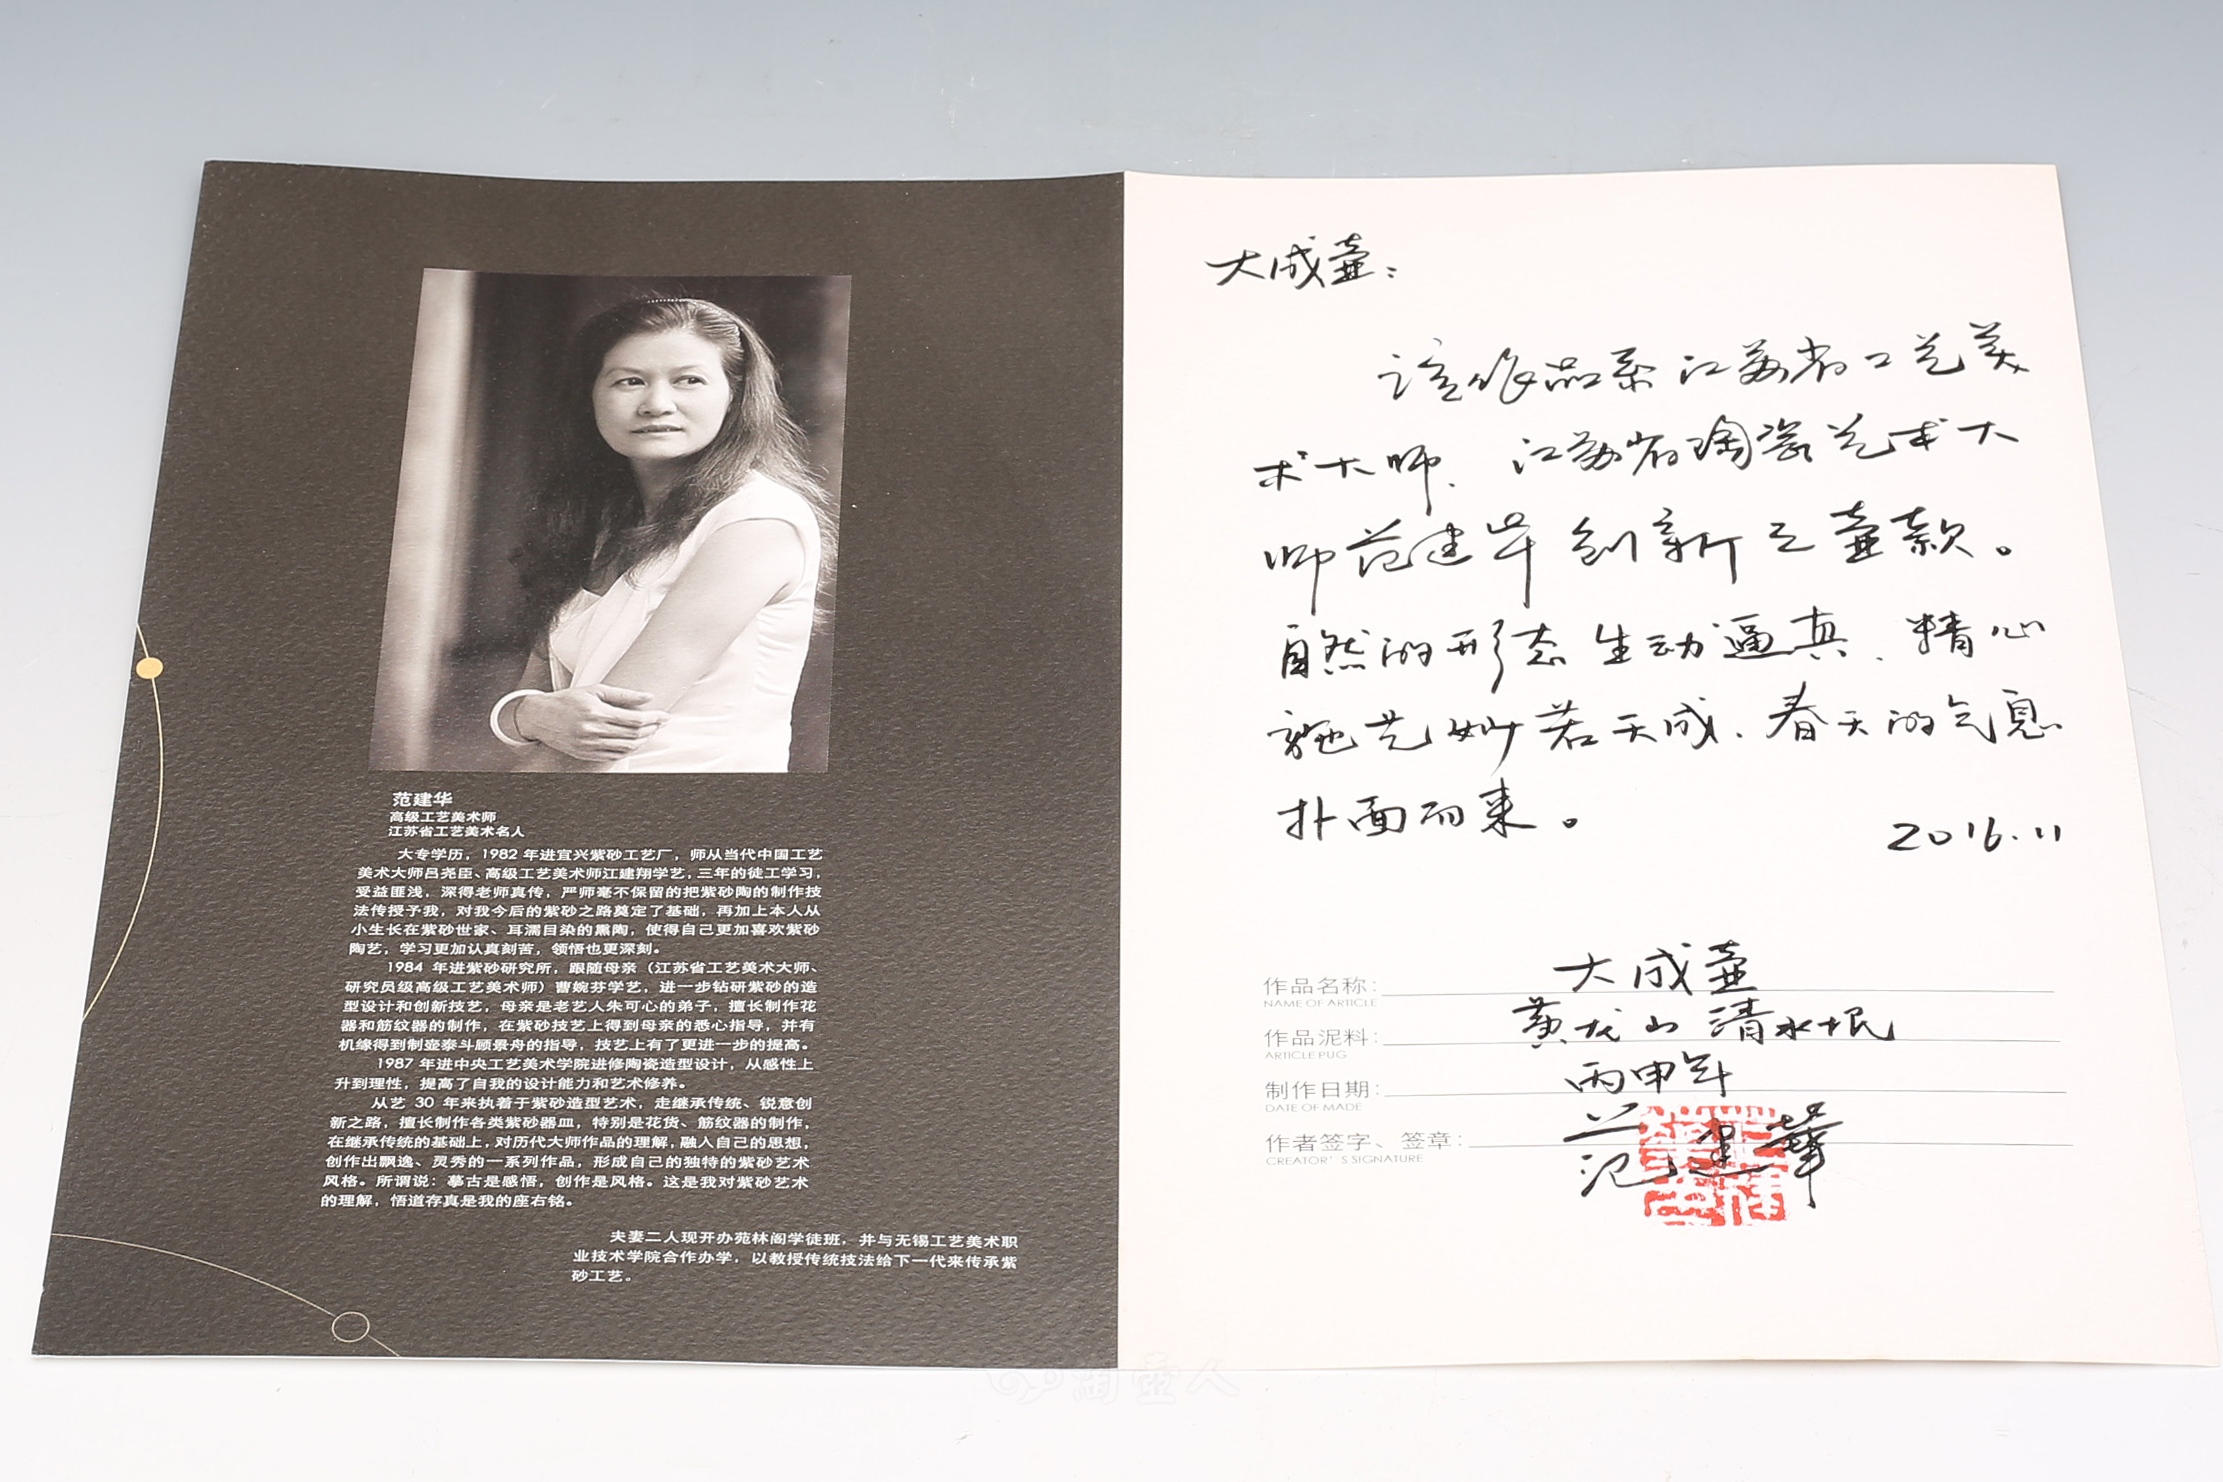 范建华
高级工艺美术师
江苏省工艺美术名人
大专学历，1982 年进宜兴紫砂工艺厂，师从当代中国工艺
美术大师吕尧臣、高级工艺美术师江建翔学艺，三年的徒工学习，
受益匪浅，深得老师真传，严师毫不保留的把紫砂陶的制作技
法传授予我，对我今后的紫砂之路奠定了基础，再加上本人从
小生长在紫砂世家、耳濡目染的熏陶，使得自己更加喜欢紫砂
陶艺，学习更加认真刻苦，领悟也更深刻。
1984 年进紫砂研究所，跟随母亲（江苏省工艺美术大师、
研究员级高级工艺美术师）曹婉芬学艺，进一步钻研紫砂的造
型设计和创新技艺，母亲是老艺人朱可心的弟子，擅长制作花
器和筋纹器的制作，在紫砂技艺上得到母亲的悉心指导，并有
机缘得到制壶泰斗顾景舟的指导，技艺上有了更进一步的提高。
1987 年进中央工艺美术学院进修陶瓷造型设计，从感性上
升到理性，提高了自我的设计能力和艺术修养。
从艺 30 年来执着于紫砂造型艺术，走继承传统、锐意创
新之路，擅长制作各类紫砂器皿，特别是花货、筋纹器的制作，
在继承传统的基础上，对历代大师作品的理解，融入自己的思想，
创作出飘逸、灵秀的一系列作品，形成自己的独特的紫砂艺术
风格。所谓说：摹古是感悟，创作是风格。这是我对紫砂艺术
的理解，悟道存真是我的座右铭。
夫妻二人现开办苑林阁学徒班，并与无锡工艺美术职
业技术学院合作办学，以教授传统技法给下一代来传承紫
砂工艺。
大成壶：
该作品系江苏省工艺美
术大师、江苏省陶瓷艺术大
师范建华创新之壶款。
自然的形态生动逼真、精心
施艺妙若天成、春天的气息
扑面而来。
2016.11
作品名称： 大成壶
NAME OF ARTICLE
作品泥料： 黄龙山清水泥
ARTICLE PUG
制作日期： 丙申年
DATE OF MADE
作者签字、签章： 范建華
CREATOR'S SIGNATURE
陶壶人